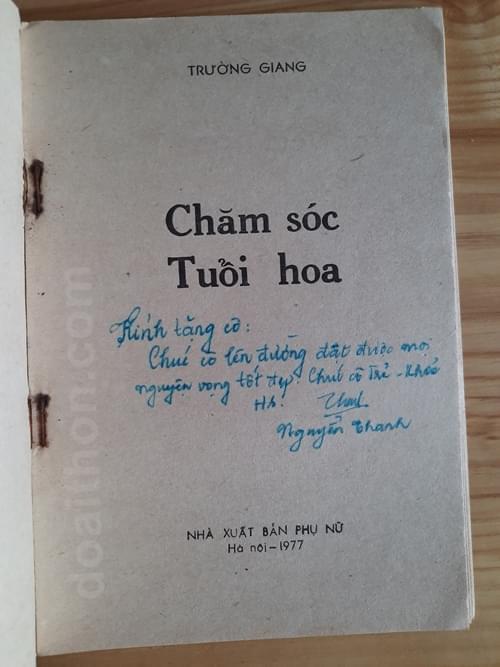 TRƯỜNG GIANG
Chăm sóc
Tuổi hoa
Kính tặng cô:
Chuć cô lên đường đât được mọi
nguyện vọng tốt đẹp. Chuć cô Trẻ - Khỏe
Nguyễn Thanh
NHÀ XUẤT BẢN PHỤ NỮ
Hà nội - 1977
doaithom.com